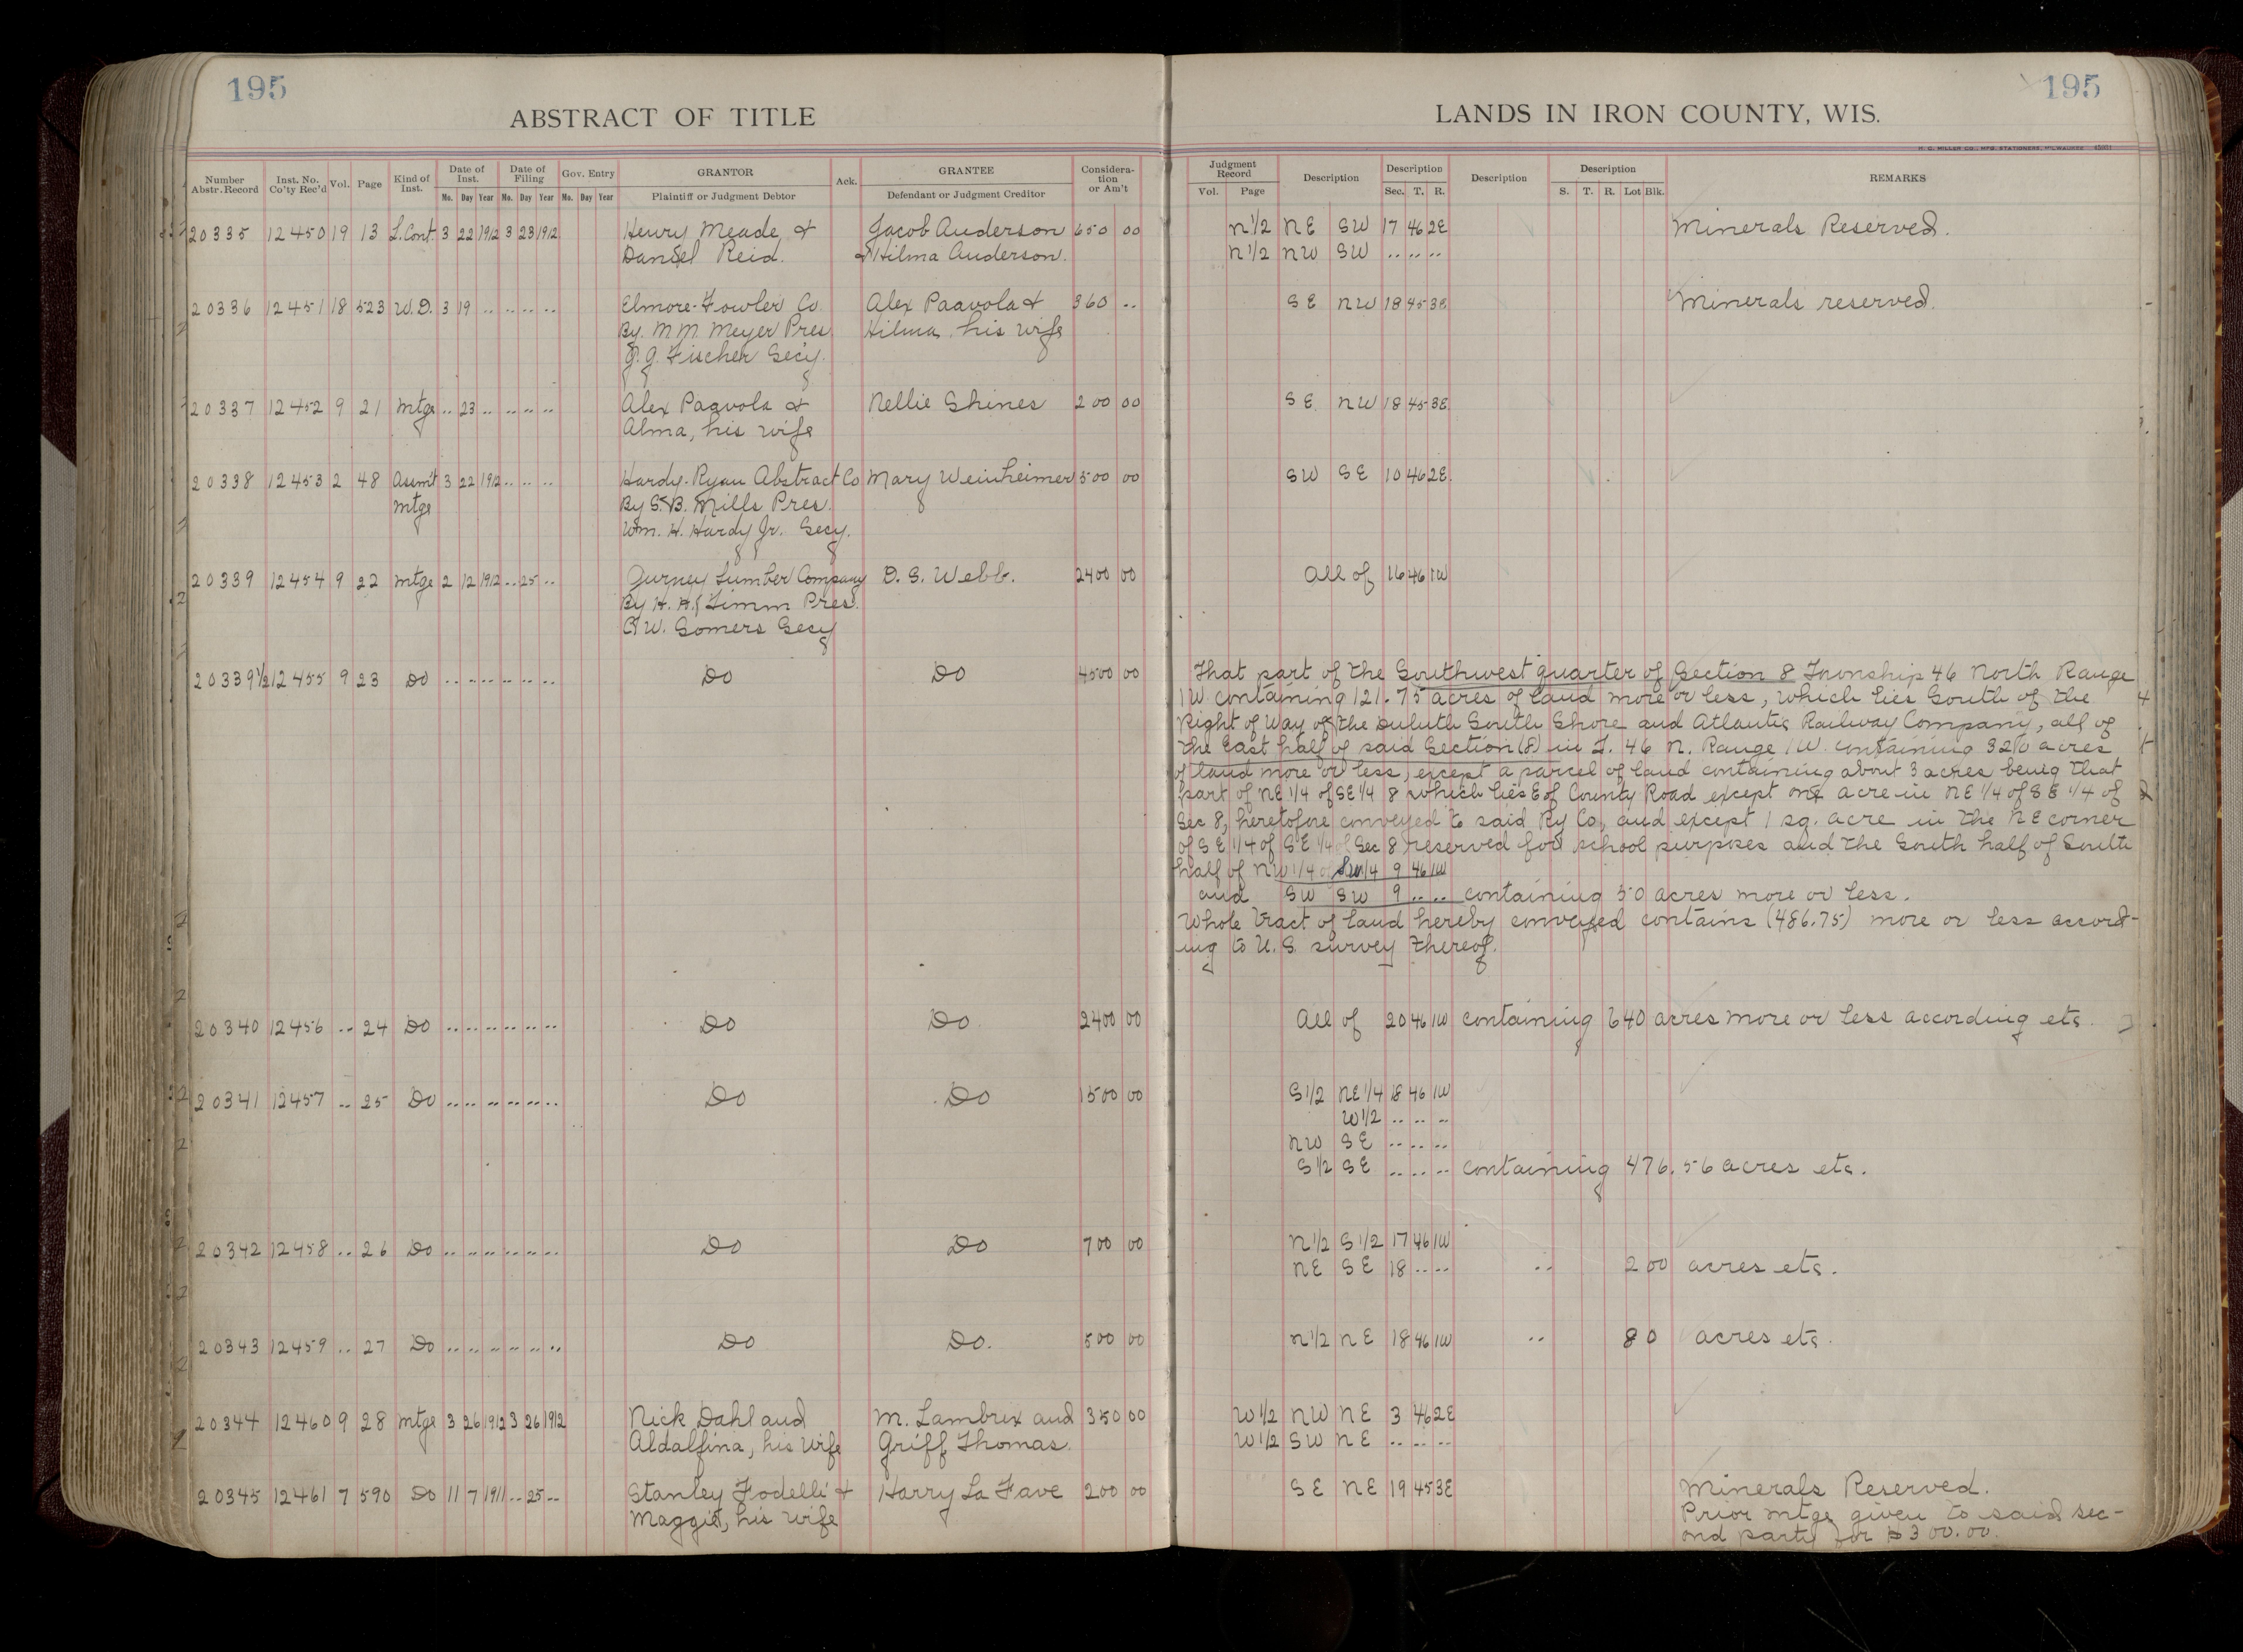 195
195
ABSTRACT OF TITLE
LANDS IN IRON COUNTY, WIS.
H. C. MILLER CO., MFG. STATIONERS, MILWAUKEE
Number Abstr. Record Inst. No. Co'ty Rec'd Vol. Page Kind of Inst. Date of Inst. Mo. Day Year Date of Filing Mo. Day Year Gov. Entry Mo. Day Year GRANTOR Plaintiff or Judgment Debtor Ack. GRANTEE Defendant or Judgment Creditor Consideration or Am't
Judgment Record Vol. Page Description Description Sec. T. R. Description Description S. T. R. Lot Blk. REMARKS
20335 12450 19 13 L. Cont. 3 22 1912 3 23 1912 Henry Meade & Jacob Anderson 650 00 N 1/2 NE SW 17 46 2E Minerals Reserved.
Daniel Reid. & Hilma Anderson. N 1/2 NW SW .. .. ..
20336 12451 18 523 W.D. 3 19 .. .. .. .. Elmore-Fowler Co. Alex Paavola & 360 .. SE NW 18 45 3E Minerals reserved.
By M.M. Meyer Pres. Hilma, his wife
G. G. Fischer Secy.
20337 12452 9 21 Mtge .. 23 .. .. .. .. Alex Paavola & Nellie Shines 200 00 SE NW 18 45 3E
Alma, his wife
20338 12453 2 48 Assmt 3 22 1912 .. .. .. Hardy-Ryan Abstract Co Mary Weinheimer 500 00 SW SE 10 46 2E
Mtge By S.B. Mills Pres.
Wm. H. Hardy Jr. Secy.
20339 12454 9 22 Mtge 2 12 1912 .. 25 .. Gurney Lumber Company D. S. Webb. 2400 00 All of 16 46 1W
By H. H. Timm Pres.
C.W. Somers Secy
20339 1/2 12455 9 23 Do .. .. .. .. .. .. Do Do 4500 00 That part of the Southwest quarter of Section 8 Township 46 North Range
1 W. containing 121.75 acres of land more or less, which lies South of the
Right of Way of the Duluth South Shore and Atlantic Railway Company, all of
the East half of said Section (8) in T. 46 N. Range 1 W. containing 320 acres
of land more or less, except a parcel of land containing about 3 acres being that
part of NE 1/4 of SE 1/4 8 which lies E of County Road except one acre in NE 1/4 of SE 1/4 of
Sec 8, heretofore conveyed to said Ry Co, and except 1 sq. acre in the NE corner
of SE 1/4 of SE 1/4 of Sec 8 reserved for school purposes and the South half of South
half of NW 1/4 of SW 1/4 9 46 1W
and SW SW 9 .. .. containing 50 acres more or less.
Whole tract of land hereby conveyed contains (486.75) more or less accord-
ing to U.S. survey thereof.
20340 12456 .. 24 Do .. .. .. .. .. .. Do Do 2400 00 All of 20 46 1W containing 640 acres more or less according etc.
20341 12457 .. 25 Do .. .. .. .. .. .. Do Do 1500 00 S 1/2 NE 1/4 18 46 1W
W 1/2 .. .. ..
NW SE .. .. ..
S 1/2 SE .. .. .. containing 476.56 acres etc.
20342 12458 .. 26 Do .. .. .. .. .. .. Do Do 700 00 N 1/2 S 1/2 17 46 1W
NE SE 18 .. .. .. 200 acres etc.
20343 12459 .. 27 Do .. .. .. .. .. .. Do Do. 500 00 N 1/2 NE 18 46 1W .. 80 acres etc.
20344 12460 9 28 Mtge 3 26 1912 3 26 1912 Nick Dahl and M. Lambrix and 350 00 W 1/2 NW NE 3 46 2E
Aldalfina, his wife Griff Thomas. W 1/2 SW NE .. .. ..
20345 12461 7 590 Do 11 7 1911 .. 25 .. Stanley Fodelli & Harry La Fave 200 00 SE NE 19 45 3E Minerals Reserved.
Maggie, his wife Prior mtge given to said sec-
ond party for $300.00.